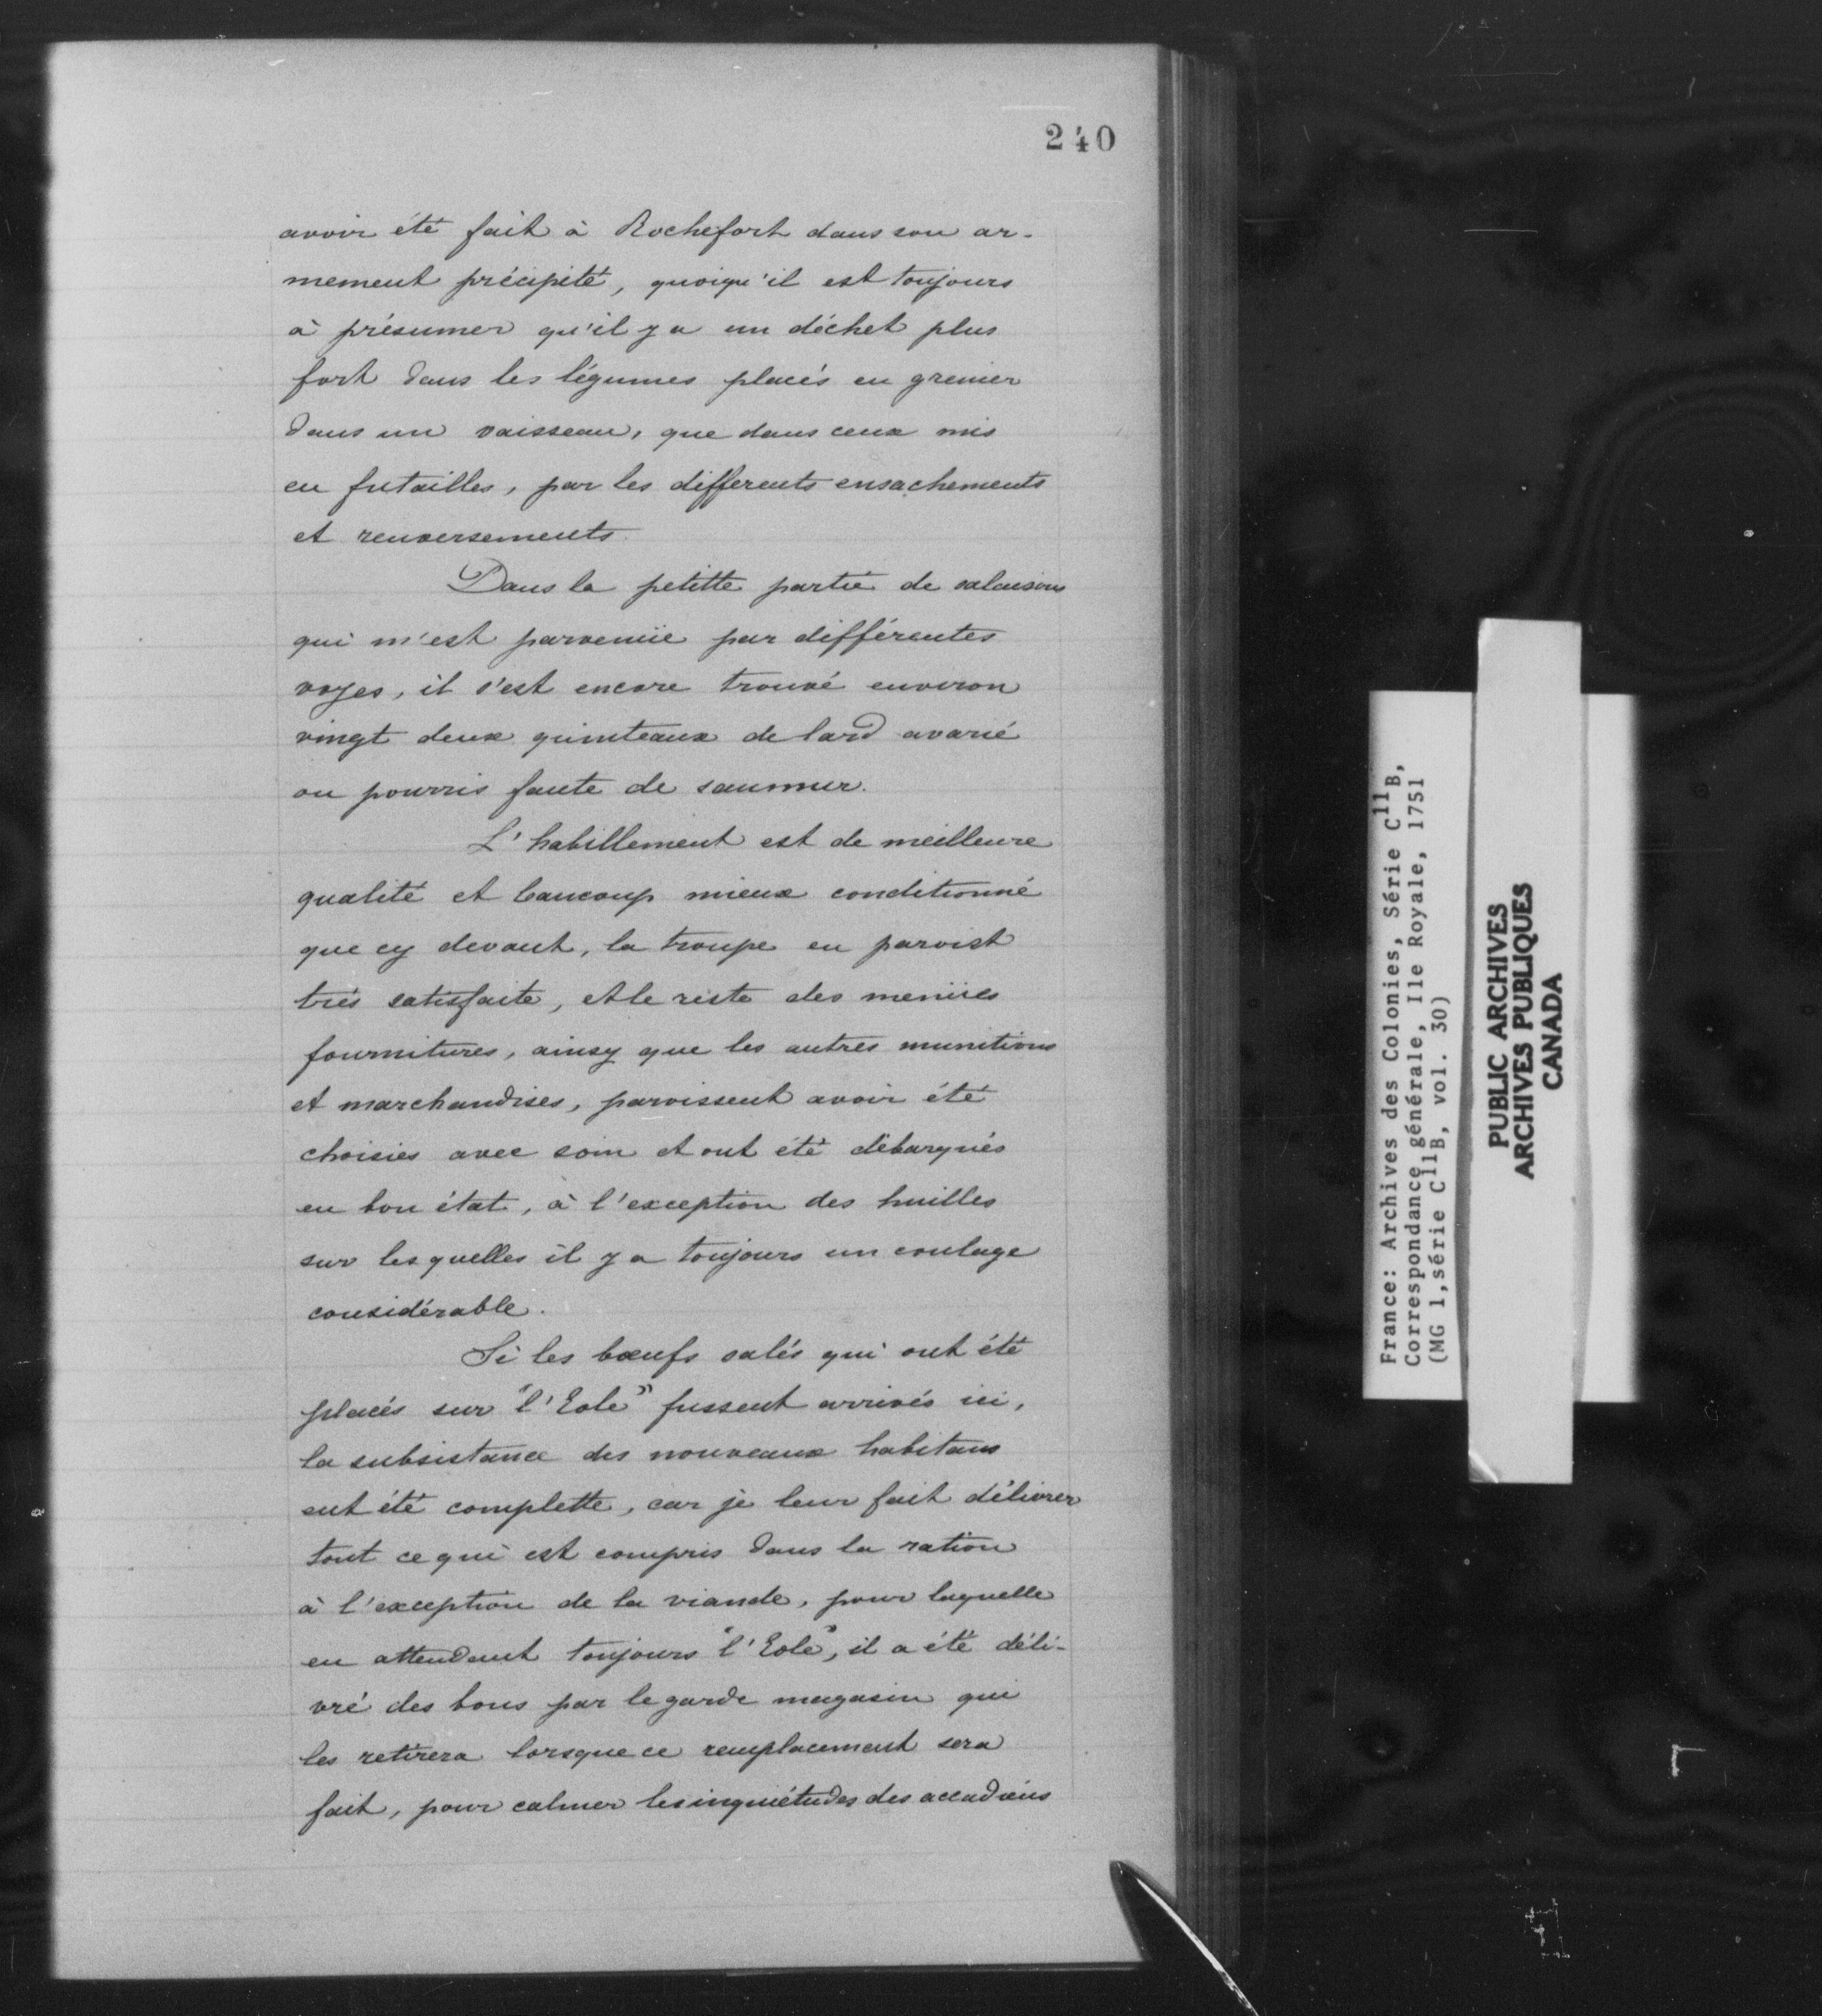 240
avoir été fait à Rochefort dans son ar-
mement précipité, quoiqu'il est toujours
à présumer qu'il y a un déchet plus
fort dans les légumes placés en grenier
dans un vaisseau, que dans ceux mis
en futailles, par les differents ensachements
et renversements.
Dans la petitte partie de salaisons
qui m'est parvenüe par différentes
voyes, il s'est encore trouvé environ
vingt deux quinteaux de lard avarié
ou pourris faute de saumur.
L'habillement est de meilleure
qualité et baucoup mieux conditionné
que cy devant, la troupe en paroist
très satisfaite, et le reste des menües
fournitures, ainsy que les autres munitions
et marchandises, paroissent avoir été
choisies avec soin et ont été débarqués
en bon état, à l'exception des huilles
sur lesquelles il y a toujours un coulage
considérable.
Si les bœufs salés qui ont été
placés sur "l'Eole" fussent arrivés ici,
la subsistance des nouveaux habitans
eut été complette, car je leur fait délivrer
tout ce qui est compris dans la ration
à l'exception de la viande, pour laquelle
en attendant toujours "l'Eole", il a été déli-
vré des bons par le garde magasin qui
les retirera lorsque ce remplacement sera
fait, pour calmer les inquiétudes des accadiens
France: Archives des Colonies, Série C11B,
Correspondance générale, Ile Royale, 1751
(MG 1, série C11B, vol. 30)
PUBLIC ARCHIVES
ARCHIVES PUBLIQUES
CANADA